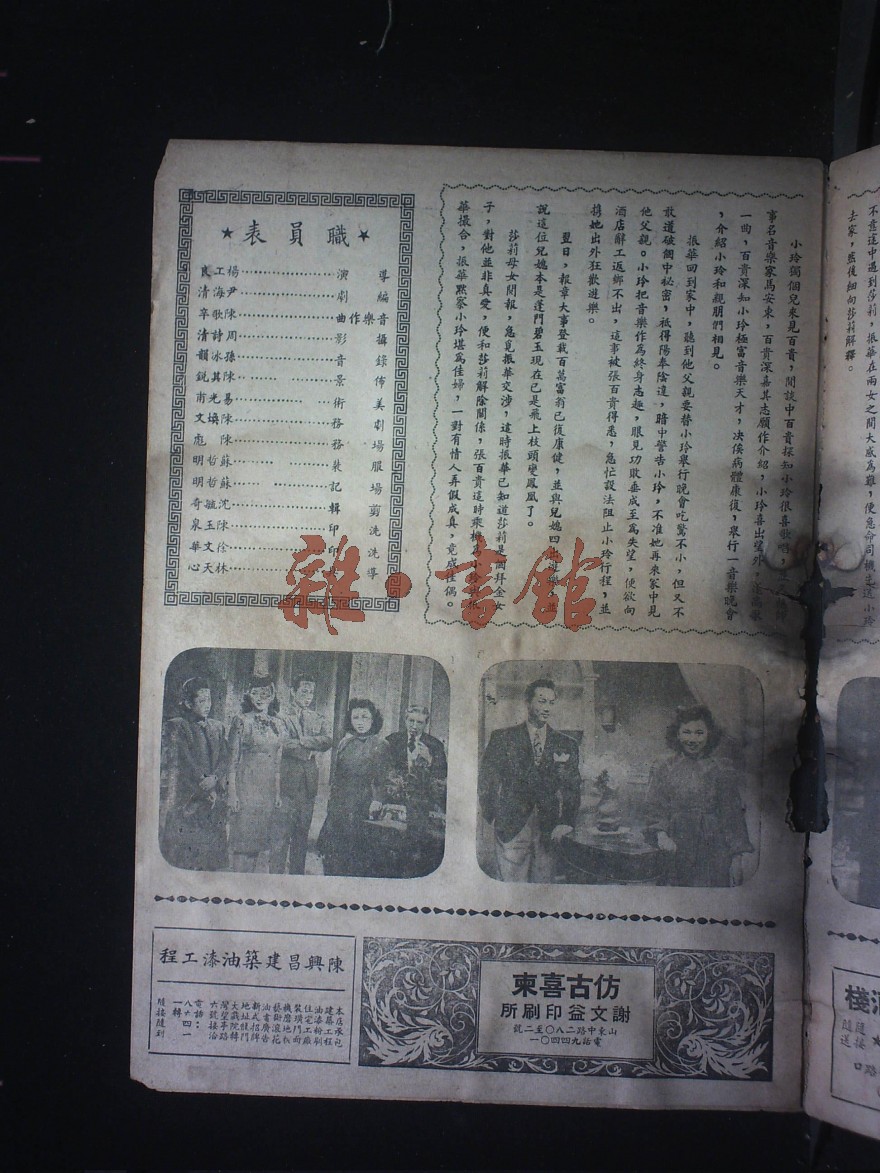 不意途中遇到莎莉，振華在兩女之間大感為難，便急命司機先送小玲
去家，然後細向莎莉解釋。
小玲獨個兒來見百貴，閒談中百貴探知小玲很喜歡唱
事名音樂家馬安東，百貴深嘉其志願作介紹，小玲喜出望外，高歌
一曲，百貴深知小玲極富音樂天才，决俟病體康復，舉行一音樂晚會
，介紹小玲和親朋們相見。
振華回到家中，聽到他父親要替小玲舉行晚會吃驚不小，但又不
敢道破個中秘密，祗得陽奉陰違，暗中警告小玲，不准她再來家中見
他父親。小玲把音樂作為終身志趣，眼見功敗垂成至為失望，便欲向
酒店辭工返鄉不出，這事被張百貴得悉，急忙設法阻止小玲行程，並
携她出外狂歡遊樂。
翌日，報章大事登載百萬富翁已復康健，並與兒媳四出遊樂，並
說這位兒媳本是蓬門碧玉現在已是飛上枝頭變鳳凰了。
莎莉母女閱報，急覓振華交涉，這時振華已知道莎莉是個拜金女
子，對他並非真愛，便和莎莉解除關係，張百貴這時乘機為小玲與振
華撮合，振華默察小玲堪為佳婦，一對有情人弄假成真，竟成佳偶。
★職員表★
導演……楊工良
編劇……尹海清
音樂作曲……陳歌辛
攝影……周詩清
錄音……孫冰韻
佈景……陳其銳
美術……易光甫
劇務……陳煥文
場務……陳彪
服裝……蘇哲明
場記……蘇哲明
剪輯……沈毓奇
洗印……陳玉泉
洗印……徐文華
導　林天心
雜·書館
仿古喜柬
謝文益印刷所
山東中路二八〇至二號
電話九四四〇一
陳興昌建築油漆工程
本店承包
建築工程
油漆粉刷
住宅工廠
裝璜門面
機磨地板
藝術浪花
油畫廣告
新式招牌
地址龍門
大戲院轉
灣望亭路
六號接洽
電話：
八六四一
一轉
隨接隨到
棧
隨接
隨送